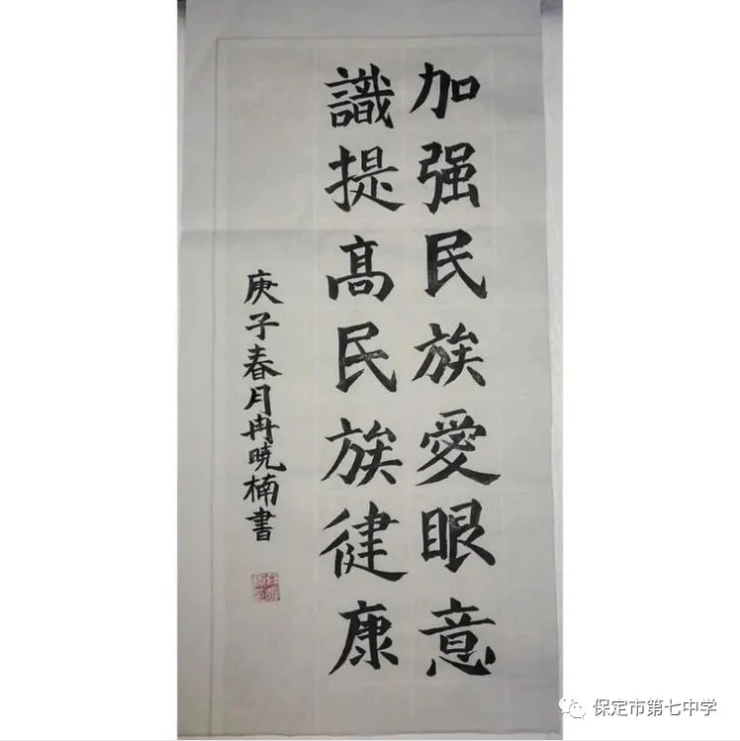 加强民族愛眼意
識提髙民族健康
庚子春月冉曉楠書
保定市第七中学